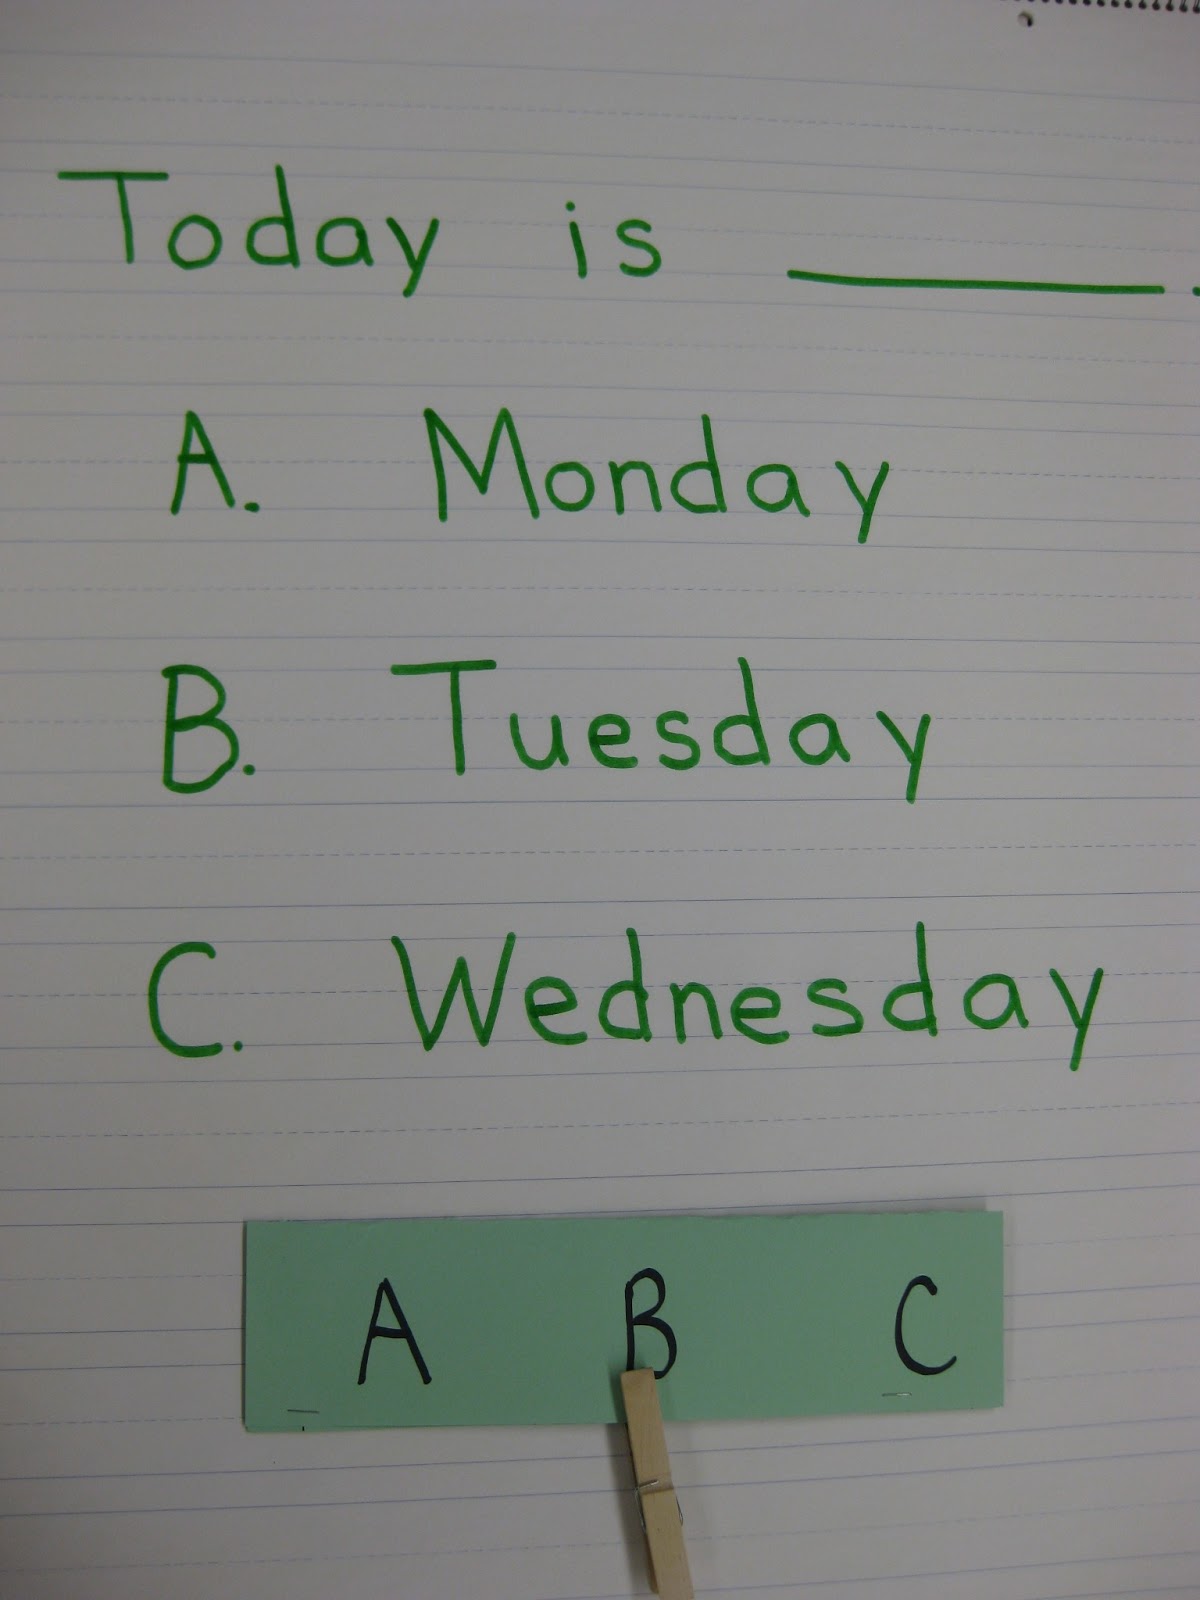 Today is ________.
A. Monday
B. Tuesday
C. Wednesday
A B C